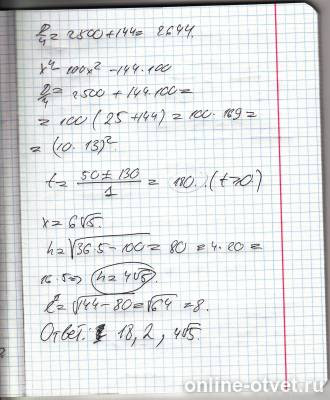 D/4 = 2500 + 144 = 2644.
x⁴ - 100x² - 144·100
D/4 = 2500 + 144·100 =
= 100(25 + 144) = 100·169 =
= (10·13)²
t = (50 ± 130)/1 = 180. (t>0)
x = 6√5.
h = √(36·5 - 100) = 80 = 4·20 =
16·5 => h = 4√5.
= √(144 - 80) = √64 = 8.
Ответ: 18, 2, 4√5.
online-otvet.ru